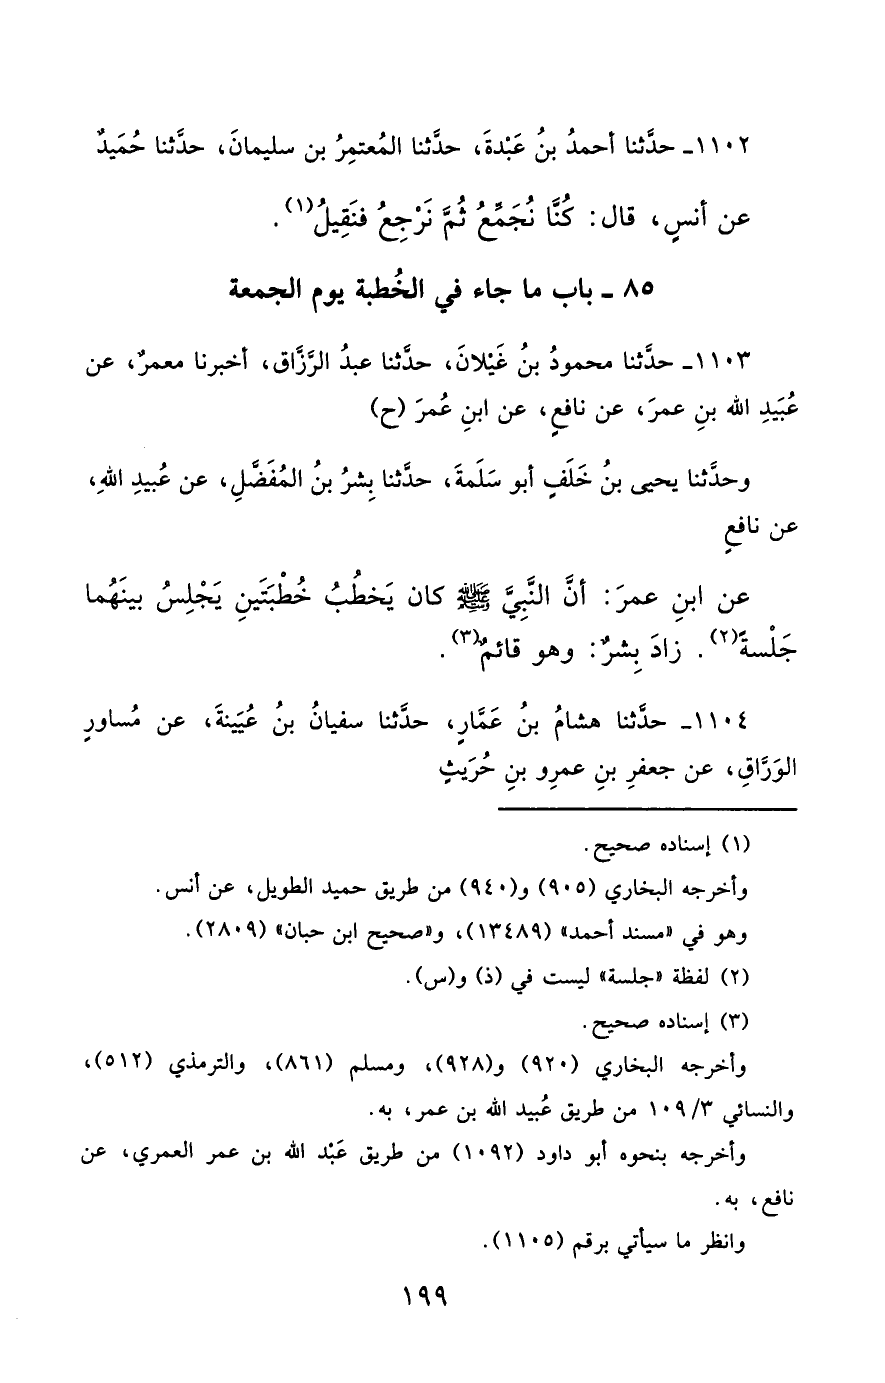 ١١٠٢ـ حدَّثنا أحمدُ بنُ عَبْدةَ، حدَّثنا المُعتمِرُ بن سليمانَ، حدَّثنا حُمَيدٌ
عن أنسٍ، قال: كُنَّا نُجَمِّعُ ثُمَّ نَرْجِعُ فنَقِيلُ(١).
٨٥ ـ باب ما جاء في الخُطبة يوم الجمعة
١١٠٣ـ حدَّثنا محمودُ بنُ غَيْلانَ، حدَّثنا عبدُ الرَّزَّاق، أخبرنا معمرٌ، عن
عُبَيدِ الله بنِ عمرَ، عن نافعٍ، عن ابنِ عُمرَ (ح)
وحدَّثنا يحيى بنُ خَلَفٍ أبو سَلَمةَ، حدَّثنا بِشرُ بنُ المُفَضَّلِ، عن عُبيدِ اللهِ،
عن نافعٍ
عن ابنِ عمرَ: أنَّ النَّبِيَّ ﷺ كان يَخطُبُ خُطْبَتَينِ يَجْلِسُ بينَهُما
جَلْسةً(٢). زادَ بِشرٌ: وهو قائمٌ(٣).
١١٠٤ـ حدَّثنا هشامُ بنُ عَمَّارٍ، حدَّثنا سفيانُ بنُ عُيَينةَ، عن مُساورٍ
الوَرَّاقِ، عن جعفرِ بنِ عمرِو بنِ حُرَيثٍ
(١) إسناده صحيح.
وأخرجه البخاري (٩٠٥) و(٩٤٠) من طريق حميد الطويل، عن أنس.
وهو في «مسند أحمد» (١٣٤٨٩)، و«صحيح ابن حبان» (٢٨٠٩).
(٢) لفظة «جلسة» ليست في (ذ) و(س).
(٣) إسناده صحيح.
وأخرجه البخاري (٩٢٠) و(٩٢٨)، ومسلم (٨٦١)، والترمذي (٥١٢)،
والنسائي ٣/ ١٠٩ من طريق عُبيد الله بن عمر، به.
وأخرجه بنحوه أبو داود (١٠٩٢) من طريق عَبْد الله بن عمر العمري، عن
نافع، به.
وانظر ما سيأتي برقم (١١٠٥).
١٩٩